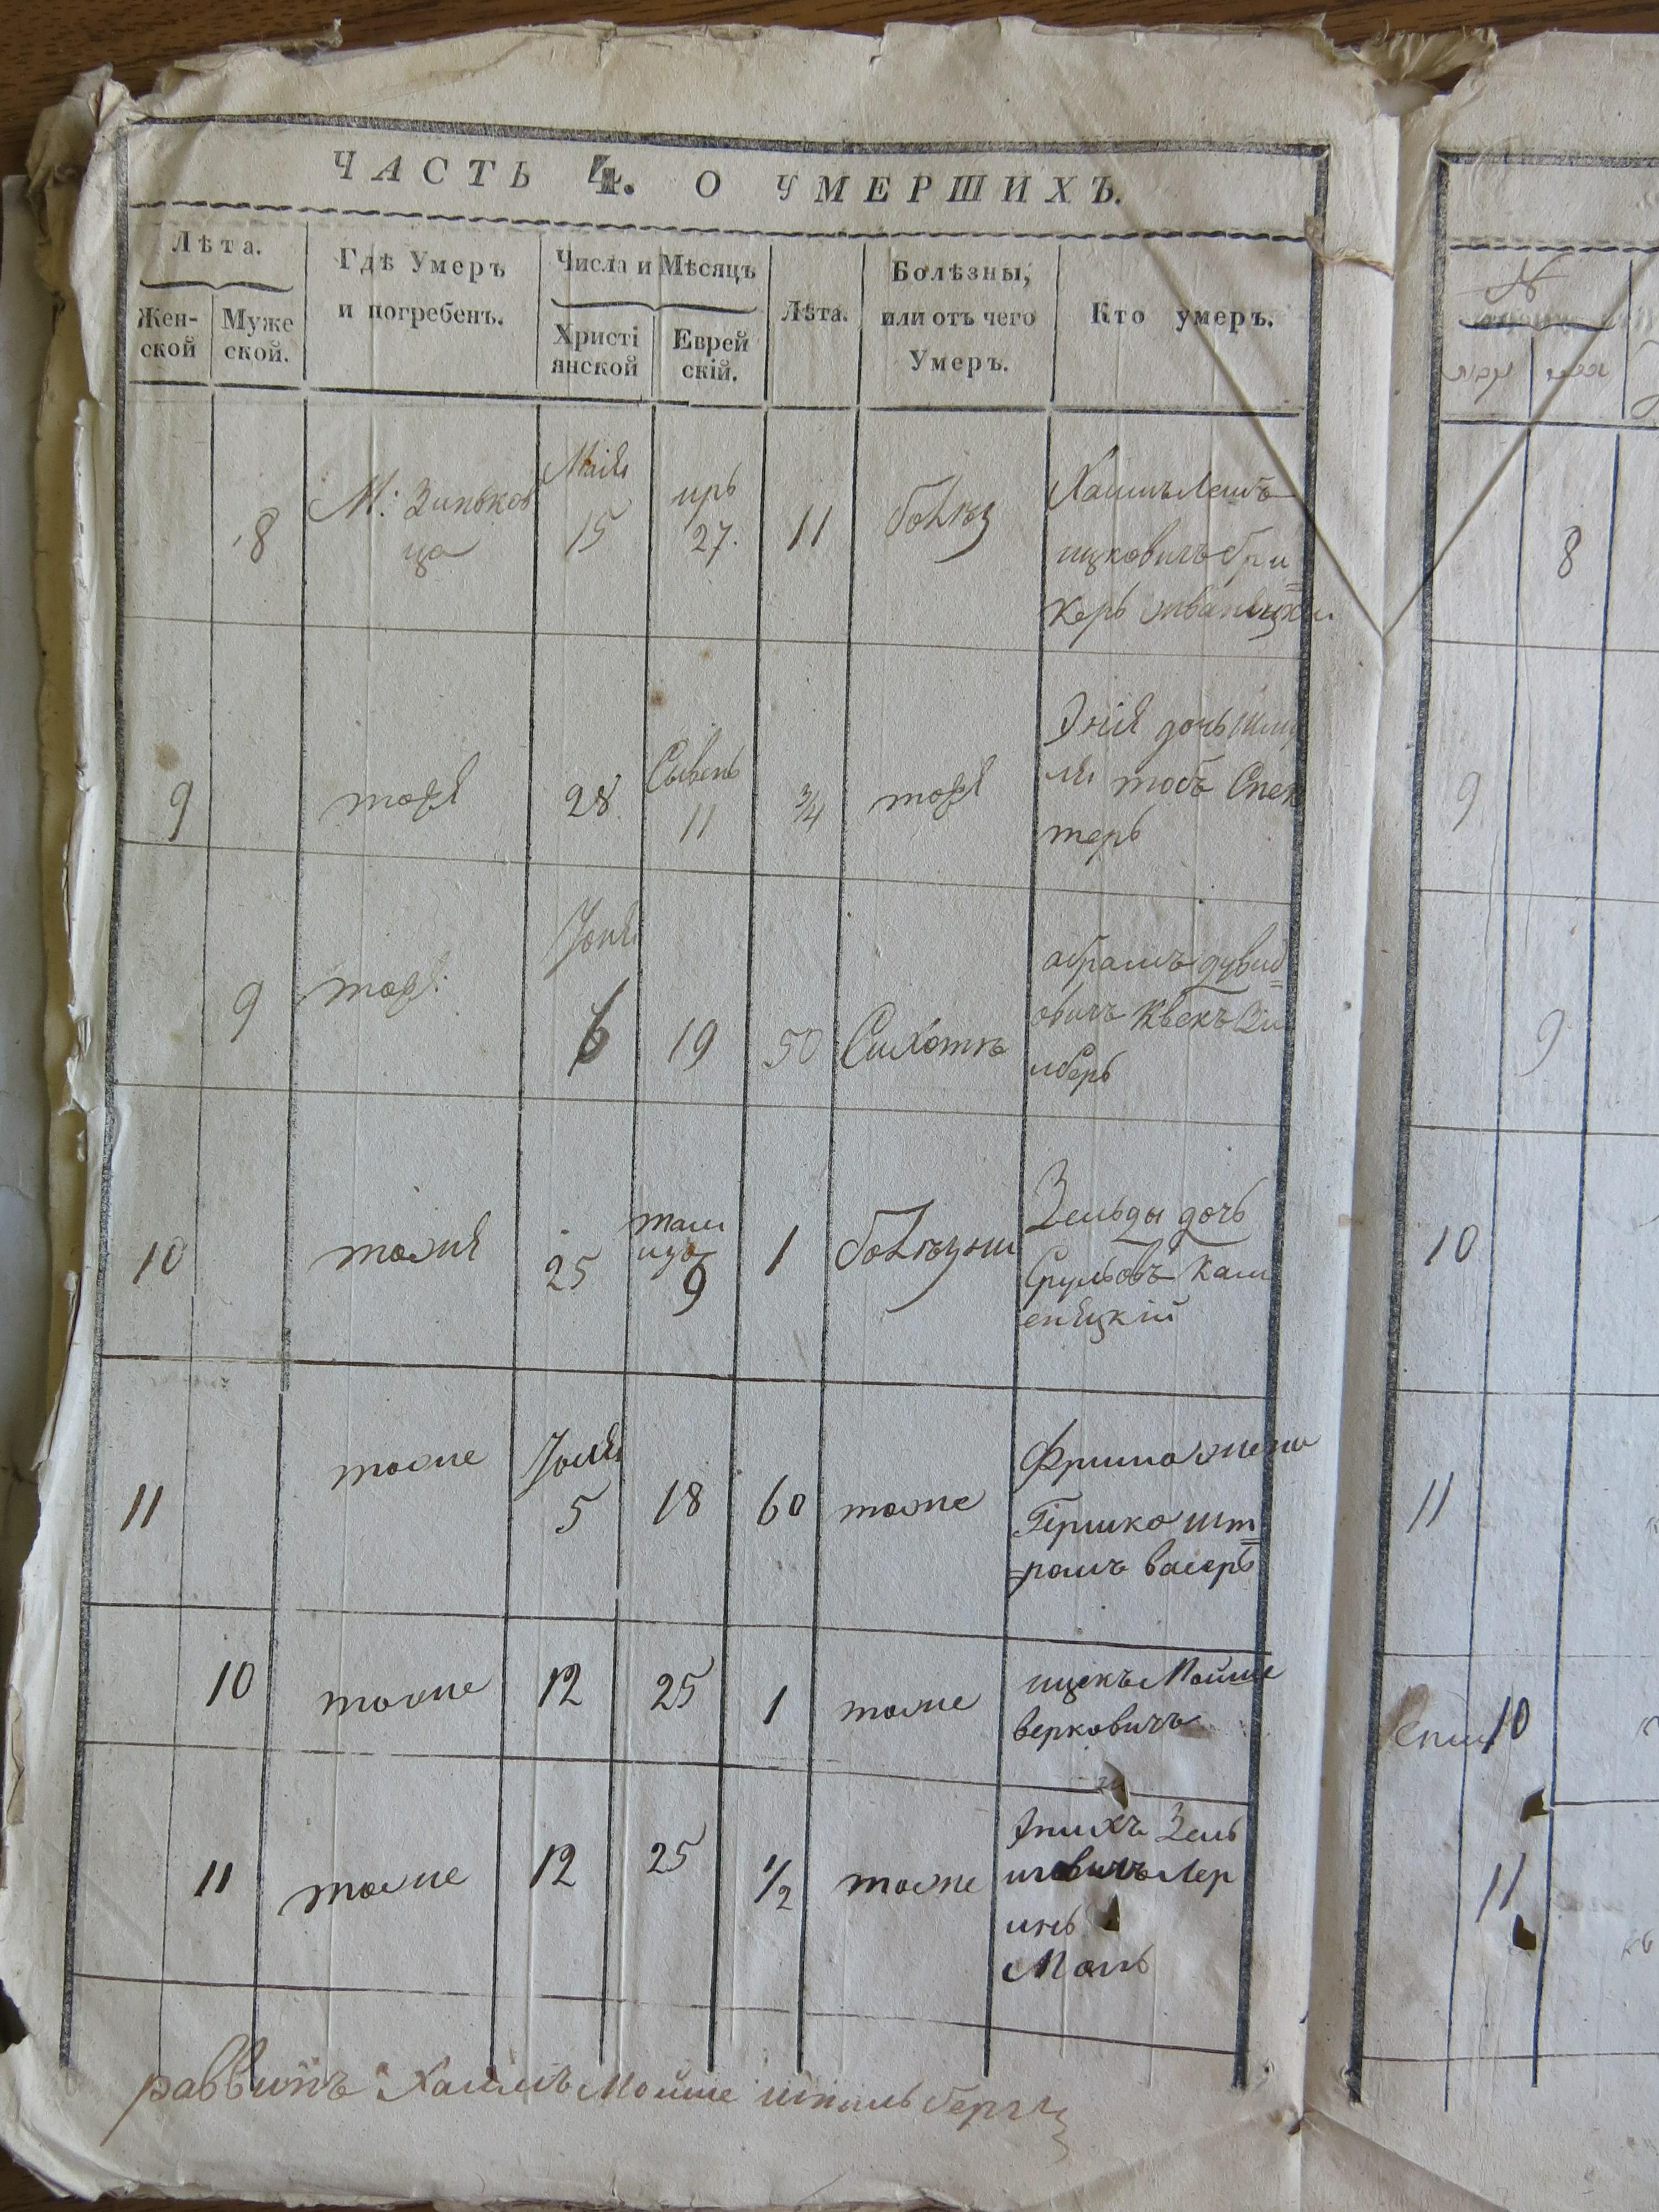 ЧАСТЬ 4. О УМЕРШИХЪ.
Лѣта.
Жен-
ской
Муже
ской.
Гдѣ Умеръ
и погребенъ.
Числа и Мѣсяцъ
Христі
янской
Еврей
скій.
Лѣта.
Болѣзны,
или отъ чего
Умеръ.
Кто умеръ.
8
М: Зиньков
ца
Маія
15
иръ
27.
11
ицковичъ бри
керъ жванецкій
9
тоже
28
Сывень
11
3/4
тоже
дочь Шму
ля тобъ Спек
теръ
9
тоже
Іюня
6
19
50
Сухотка
абрамъ дувид
овичъ Квекъ Зи
лберъ
10
тоже
25
таму
изъ
9
1
болѣзни
Зельды дочь
Срульовъ Кам
енецкій
11
тоже
Іюля
5
18
60
тоже
Фрима жена
Гершко шт
ромъ васеръ
10
тоже
12
25
1
тоже
ицекъ Мойше
верковичъ
11
тоже
12
25
1/2
тоже
Зель
Манъ
раввинъ Хаимъ Мойше шпильбергъ
8
9
9
10
11
10
11